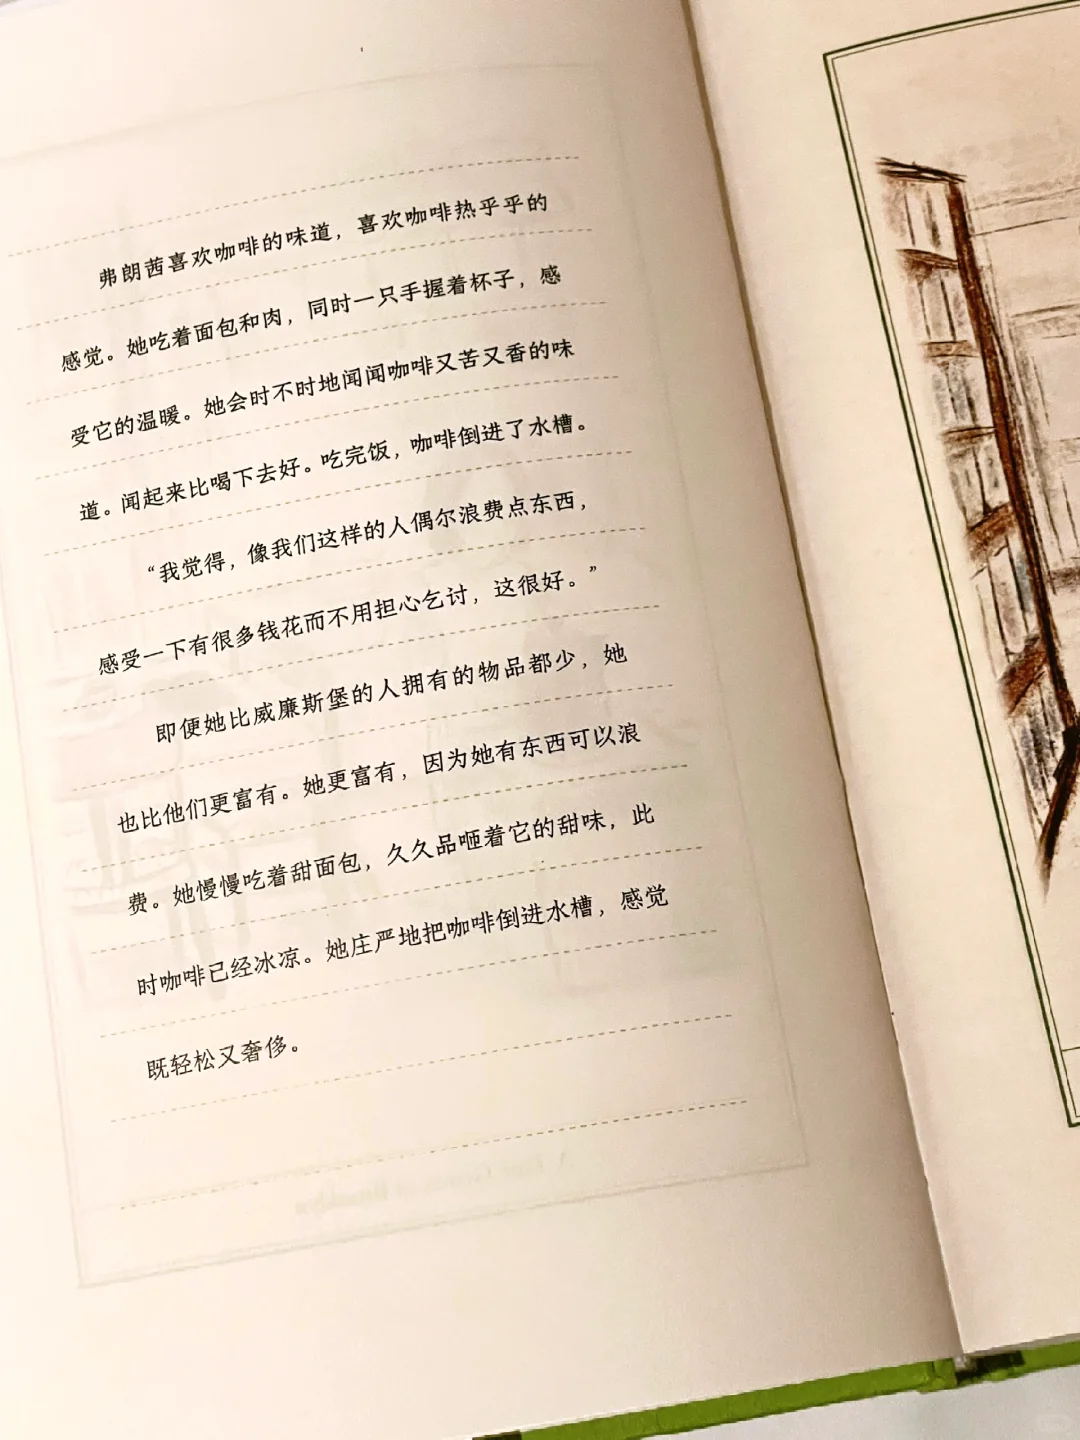 弗朗茜喜欢咖啡的味道，喜欢咖啡热乎乎的
感觉。她吃着面包和肉，同时一只手握着杯子，感
受它的温暖。她会时不时地闻闻咖啡又苦又香的味
道。闻起来比喝下去好。吃完饭，咖啡倒进了水槽。
“我觉得，像我们这样的人偶尔浪费点东西，
感受一下有很多钱花而不用担心乞讨，这很好。”
即便她比威廉斯堡的人拥有的物品都少，她
也比他们更富有。她更富有，因为她有东西可以浪
费。她慢慢吃着甜面包，久久品咂着它的甜味，此
时咖啡已经冰凉。她庄严地把咖啡倒进水槽，感觉
既轻松又奢侈。